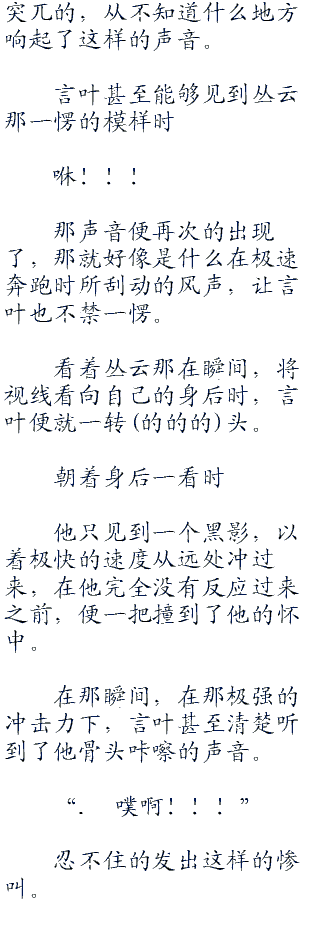 突兀的，从不知道什么地方
响起了这样的声音。
言叶甚至能够见到丛云
那一愣的模样时
咻！！！
那声音便再次的出现
了，那就好像是什么在极速
奔跑时所刮动的风声，让言
叶也不禁一愣。
看着丛云那在瞬间，将
视线看向自己的身后时，言
叶便就一转(的的的)头。
朝着身后一看时
他只见到一个黑影，以
着极快的速度从远处冲过
来，在他完全没有反应过来
之前，便一把撞到了他的怀
中。
在那瞬间，在那极强的
冲击力下，言叶甚至清楚听
到了他骨头咔嚓的声音。
“． 噗啊！！！”
忍不住的发出这样的惨
叫。